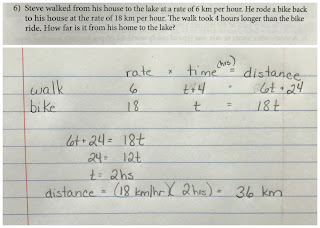 6) Steve walked from his house to the lake at a rate of 6 km per hour. He rode a bike back
to his house at the rate of 18 km per hour. The walk took 4 hours longer than the bike
ride. How far is it from his home to the lake?
rate × time (hrs) = distance
walk 6 t+4 = 6t + 24
bike 18 t = 18t
6t + 24 = 18t
24 = 12t
t = 2hs
distance = (18 km/hr)(2hrs) = 36 km